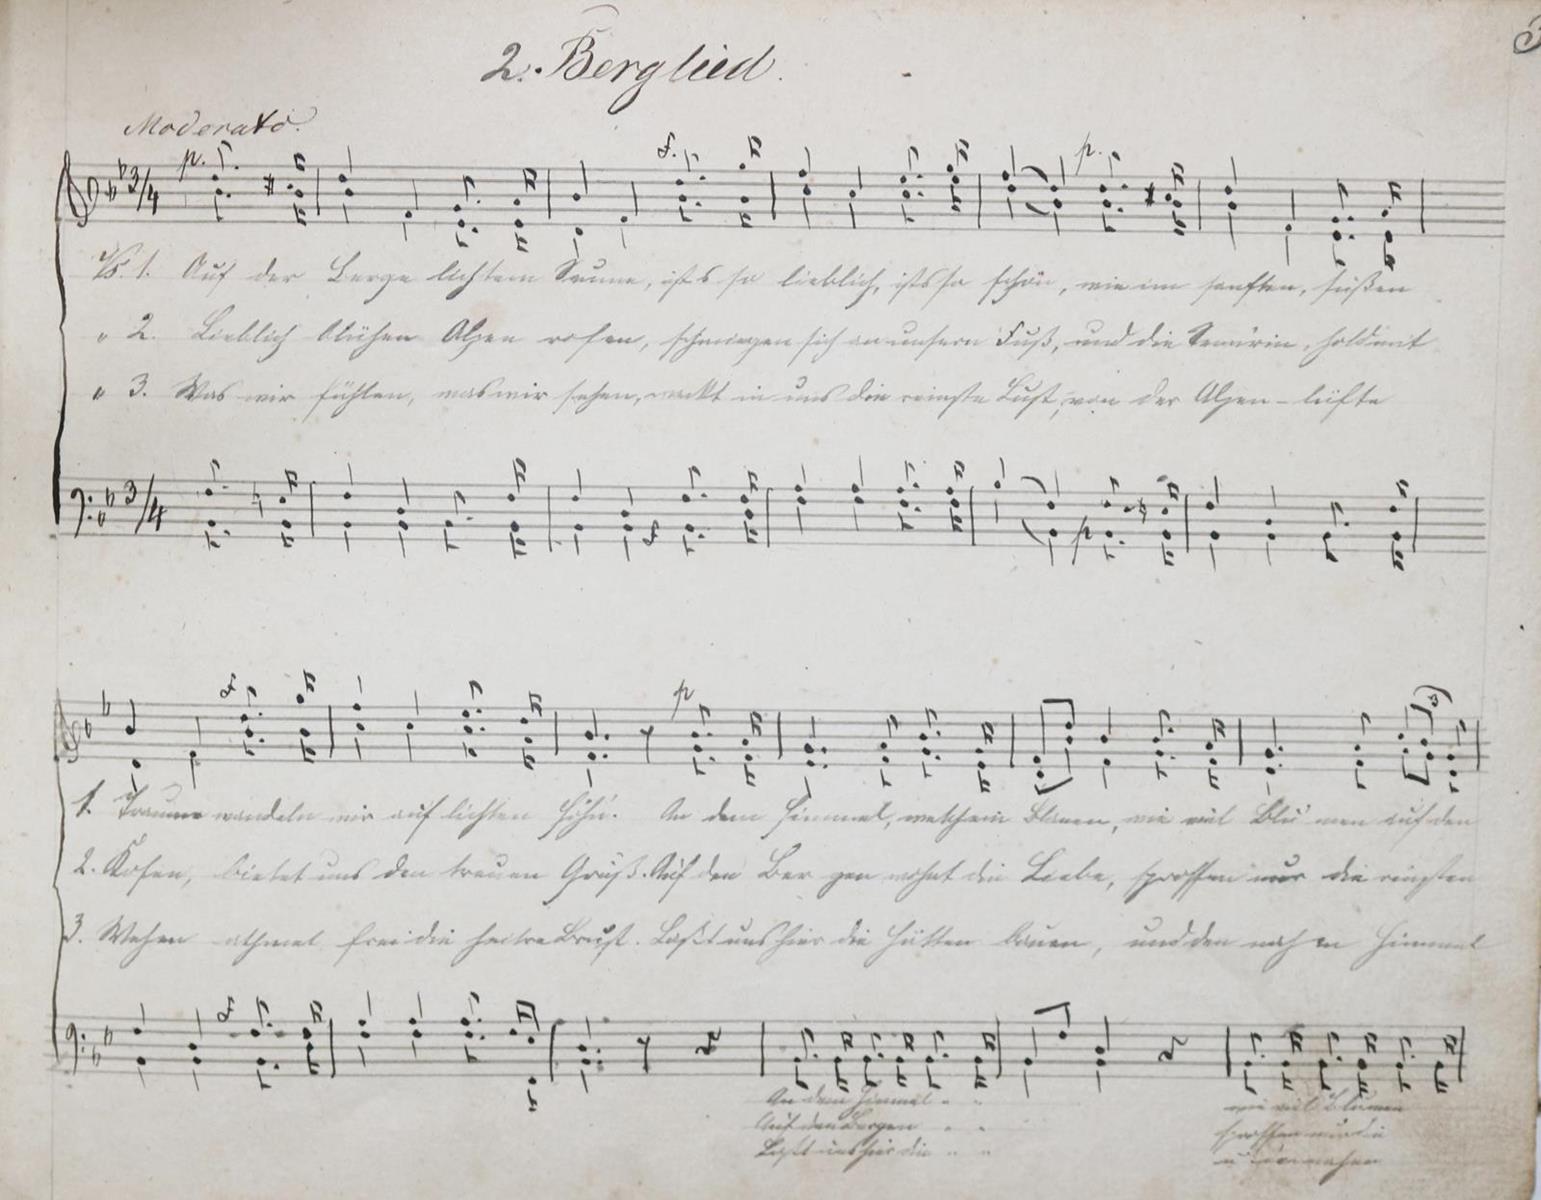 2. Berglied.
3
Moderato.
p. f. p.
3/4
Vs. 1. Auf der Berge lichtem Saume, ists so lieblich, ists so schön, wie im sanften, süßen
" 2. Lieblich blühen Alpen rosen, schmiegen sich an unsern Fuß, und die Sennrin, hold mit
" 3. Was wir fühlen, was wir sehen, weckt in uns die reinste Lust, von der Alpen-lüfte
3/4
f p
f p 3
1. Traume wandeln wir auf lichten Höhn. An dem Himmel, welch ein Blauen, wie viel Blu men auf den
2. Kosen, bietet uns den treuen Gruß. Auf den Ber gen wohnt die Liebe, sprossen nur die reinsten
3. Wehen athmet frei die heitre Brust. Laßt uns hier die Hütten bauen, und den nah en Himmel
f
An dem Himmel " " wie viel Blumen
Auf den Bergen " " sprossen nur die
Laßt uns hier die " " u den nahen